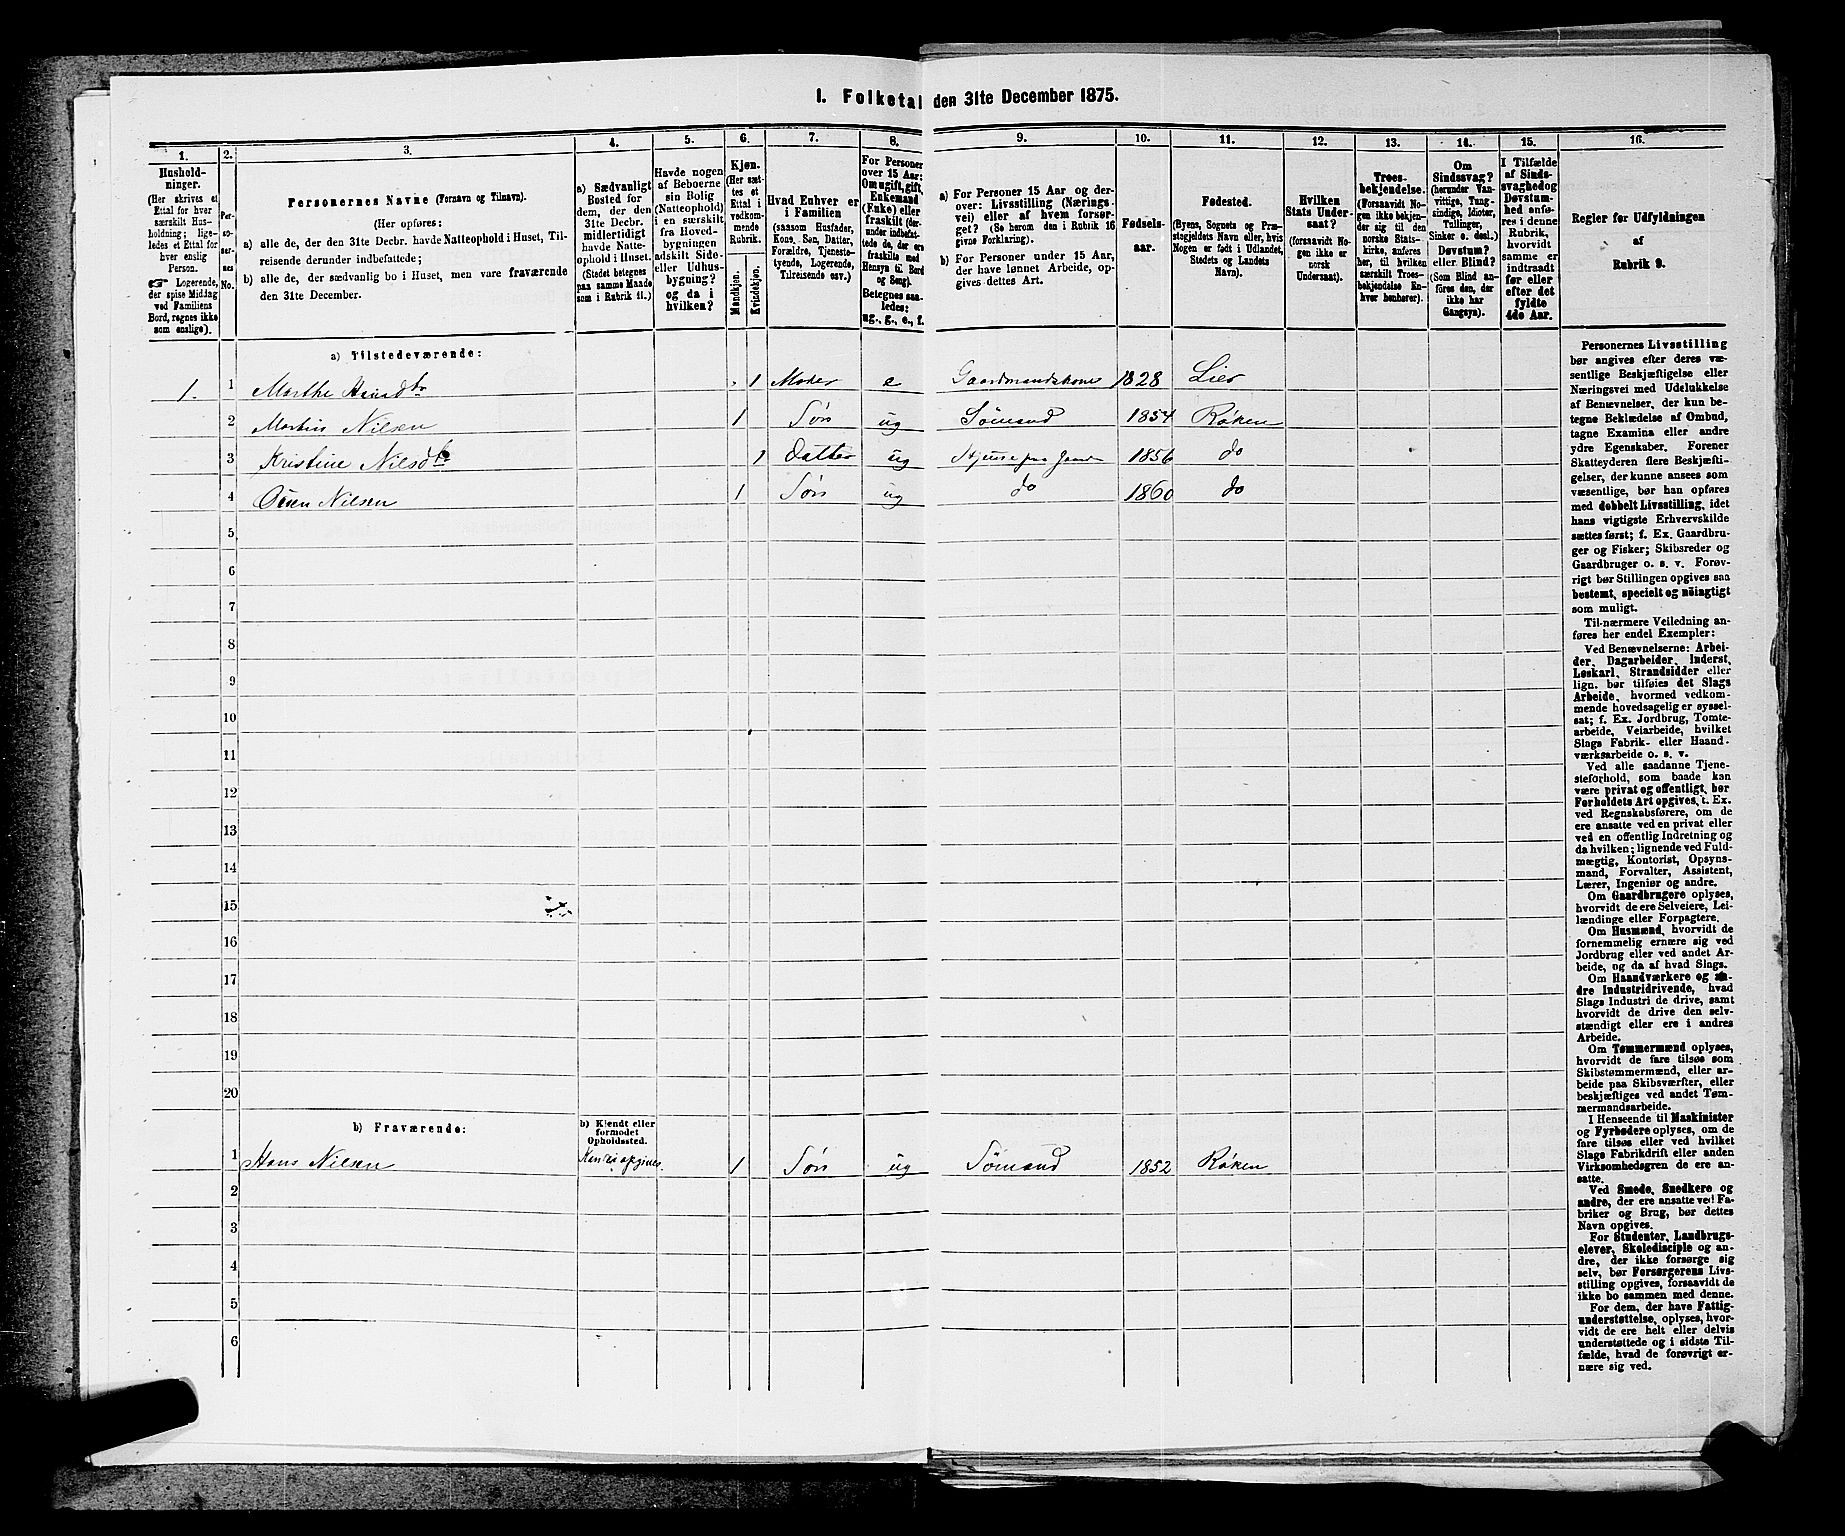 I. Folketal den 31te December 1875.
1.
Hushold-
ninger.
(Her skrives et
Ettal for hver
særskilt Hus-
holdning; lige-
ledes et Ettal for
hver enslig
Person.
☞ Logerende,
der spise Middag
ved Familiens
Bord, regnes ikke
som enslige).
2.
Per-
so-
ner-
nes
No.
3.
Personernes Navne (Fornavn og Tilnavn).
(Her opføres:
a) alle de, der den 31te Decbr. havde Natteophold i Huset, Til-
reisende derunder indbefattede;
b) alle de, der sædvanlig bo i Huset, men vare fraværende
den 31te December.
4.
a) Sædvanligt
Bosted for
dem, der den
31te Decbr.
midlertidigt
havde Natte-
ophold i Huset.
(Stedet betegnes
paa samme Maade
som i Rubrik 11.)
5.
Havde nogen
af Beboerne
sin Bolig
(Natteophold)
i en særskilt
fra Hoved-
bygningen
adskilt Side-
eller Udhus-
bygning?
og da i
hvilken?
6.
Kjøn.
(Her sæt-
tes et
Ettal i
vedkom-
mende
Rubrik.
Mandkjøn.
Kvindekjøn.
7.
Hvad Enhver er
i Familien
(saasom Husfader,
Kone, Søn, Datter,
Forældre, Tjeneste-
tyende, Logerende,
Tilreisende osv.)
8.
For Personer
over 15 Aar:
Om ugift, gift,
Enkemand
(Enke) eller
fraskilt (der-
under indbefat-
tede de, der ere
fraskilte med
Hensyn til Bord
og Seng).
Betegnes saa-
ledes:
ug., g., e., f.
9.
a) For Personer 15 Aar og der-
over: Livsstilling (Nærings-
vei) eller af hvem forsør-
get? (Se herom den i Rubrik 16
givne Forklaring).
b) For Personer under 15 Aar,
der have lønnet Arbeide, op-
gives dettes Art.
10.
Fødsels-
aar.
11.
Fødested.
(Byens, Sognets og Præ-
stegjeldets Navn eller, hvis
Nogen er født i Udlandet,
Stedets og Landets
Navn).
12.
Hvilken
Stats Under-
saat?
(forsaavidt No-
gen ikke er
norsk
Undersaat).
13.
Troes-
bekjendelse.
(Forsaavidt No-
gen ikke bekjen-
der sig til den
norske Stats-
kirke, anføres
her, til hvilken
særskilt Troes-
bekjendelse En-
hver henhører).
14.
Om
Sindssvag?
(herunder Van-
vittige, Tung-
sindige, Idioter,
Tullinger,
Sinker o. desl.)
Døvstum?
eller Blind?
(Som Blind an-
føres den, der
ikke har
Gangsyn).
15.
I Tilfælde
af Sinds-
svaghed og
Døvstum-
hed anfø-
res i denne
Rubrik,
hvorvidt
samme er
indtraadt
før eller
efter det
fyldte
4de Aar.
16.
Regler for Udfyldningen
af
Rubrik 9.
a) Tilstedeværende:
1. 1 Marthe 1 Moder e Gaardmandskone 1828 Lier
2 Martin Nilsen 1 Søn ug Sømand 1854 Røken
3 Kristine Nilsdtr 1 Datter ug 1856 do
4 Nilsen 1 Søn ug do 1860 do
5
6
7
8
9
10
11
12
13
14
15
16
17
18
19
20
b) Fraværende:
b) Kjendt eller
formodet
Opholdssted.
1 Hans Nilsen Kan ei opgives. 1 Søn ug Sømand 1852 Røken
2
3
4
5
6
Personernes Livsstilling
bør angives efter deres væ-
sentlige Beskjæftigelse eller
Næringsvei med Udelukkelse
af Benævnelser, der kun be-
tegne Beklædelse af Ombud,
tagne Examina eller andre
ydre Egenskaber. Forener
Skatteyderen flere Beskjæfti-
gelser, der kunne ansees som
væsentlige, bør han opføres
med dobbelt Livsstilling, idet
hans vigtigste Erhvervskilde
sættes først; f. Ex. Gaardbru-
ger og Fisker; Skibsreder og
Gaardbruger o. s. v. Forøv-
rigt bør Stillingen opgives saa
bestemt, specielt og nøiagtigt
som muligt.
Til nærmere Veiledning an-
føres her endel Exempler:
Ved Benævnelserne: Arbei-
der, Dagarbeider, Inderst,
Løskarl, Strandsidder eller
lign. bør tilføies det Slags
Arbeide, hvormed vedkom-
mende hovedsagelig er syssel-
sat; f. Ex. Jordbrug, Tomte-
arbeide, Veiarbeide, hvilket
Slags Fabrik- eller Haand-
værksarbeide o. s. v.
Ved alle saadanne Tjene-
steforhold, som baade kan
være privat og offentligt, bør
Forholdets Art opgives, t. Ex.
ved Regnskabsførere, om de
ere ansatte ved en privat eller
ved en offentlig Indretning og
da hvilken; lignende ved Fuld-
mægtig, Kontorist, Opsyns-
mand, Forvalter, Assistent,
Lærer, Ingeniør og andre.
Om Gaardbrugere oplyses,
hvorvidt de ere Selveiere, Lei-
lændinge eller Forpagtere.
Om Husmænd, hvorvidt de
fornemmelig ernære sig ved
Jordbrug eller ved andet Ar-
beide, og da af hvad Slags.
Om Haandværkere og an-
dre Industridrivende, hvad
Slags Industri de drive, samt
hvorvidt de drive den selv-
stændigt eller ere i andres
Arbeide.
Om Tømmermænd oplyses,
hvorvidt de fare tilsøs som
Skibstømmermænd, eller ar-
beide paa Skibsværfter, eller
beskjæftiges ved andet Tøm-
mermandsarbeide.
I Henseende til Maskinister
og Fyrbødere oplyses, om de
fare tilsøs eller ved hvilket
Slags Fabrikdrift eller anden
Virksomhedsgren de ere an-
satte.
Ved Smede, Snedkere og
andre, der ere ansatte ved Fa-
briker og Brug, bør dettes
Navn opgives.
For Studenter, Landbrugs-
elever, Skoledisciple og an-
dre, der ikke forsørge sig
selv, bør Forsørgerens Livs-
stilling opgives, forsaavidt de
ikke bo sammen med denne.
For dem, der have Fattig-
understøttelse, oplyses, hvor-
vidt de ere helt eller delvis
understøttede og i sidste Til-
fælde, hvad de forøvrigt er-
nære sig ved.